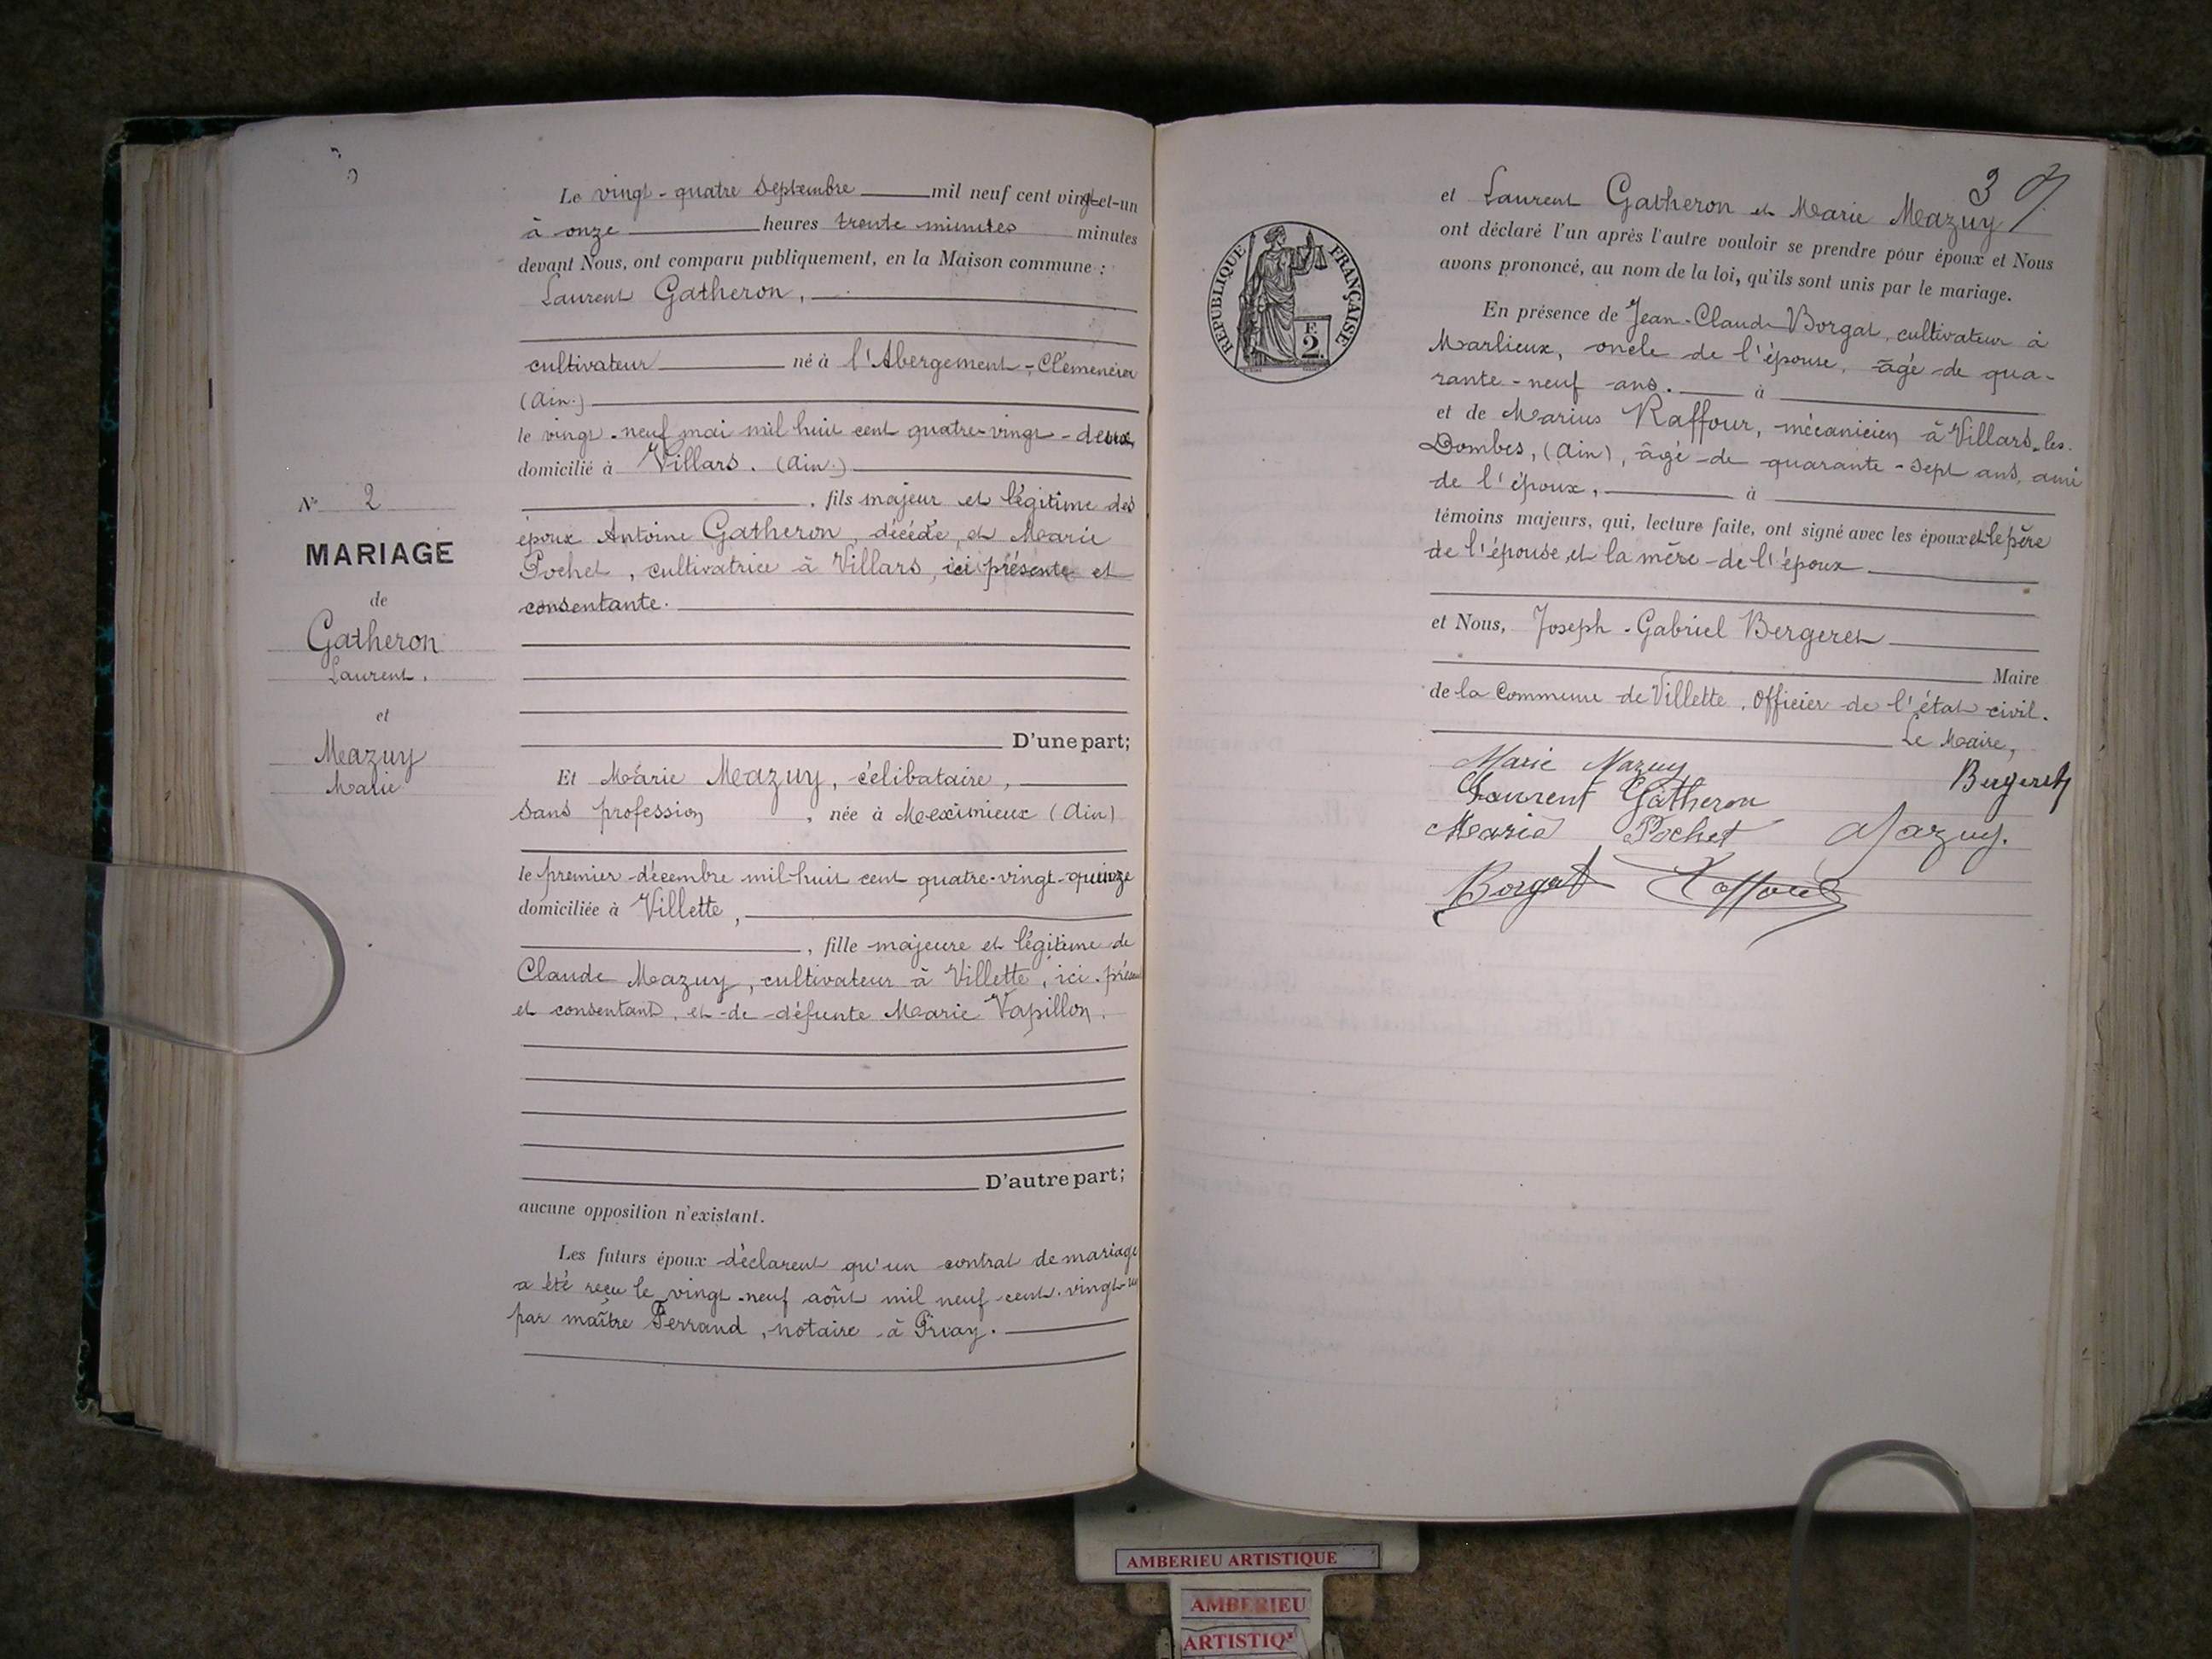 Le vingt-quatre septembre mil neuf cent vingt-et-un
à onze heures trente minutes minutes
devant Nous, ont comparu publiquement, en la Maison commune :
Laurent Gatheron,
cultivateur né à l'Abergement-Clémencia
(Ain.)
le vingt-neuf mai mil huit cent quatre-vingt-deux,
domicilié à Villars. (Ain.)
, fils majeur et légitime des
époux Antoine Gatheron, décédé, et Marie
Pochet, cultivatrice à Villars, ici présente et
consentante.
D'une part;
N° 2
MARIAGE
de
Gatheron
Laurent.
et
Mazuy
Marie
Et Marie Mazuy, célibataire,
sans profession, née à Meximieux (Ain)
le premier décembre mil-huit cent quatre-vingt-quinze
domiciliée à Villette,
, fille majeure et légitime de
Claude Mazuy, cultivateur à Villette, ici présent
et consentant, et de défunte Marie Vapillon.
D'autre part;
aucune opposition n'existant.
Les futurs époux déclarent qu'un contrat de mariage
a été reçu le vingt-neuf août mil neuf cent vingt-un
par maître Ferrand, notaire à Privay.
3
et Laurent Gatheron et Marie Mazuy
ont déclaré l'un après l'autre vouloir se prendre pour époux et Nous
avons prononcé, au nom de la loi, qu'ils sont unis par le mariage.
RÉPUBLIQUE FRANÇAISE
F.
2.
En présence de Jean-Claude Borgat, cultivateur à
Marlieux, oncle de l'épouse, âgé de qua-
rante-neuf ans. à
et de Marius Raffour, mécanicien à Villars-les-
Dombes, (Ain), âgé de quarante-sept ans, ami
de l'époux, à
témoins majeurs, qui, lecture faite, ont signé avec les époux et le père
de l'épouse, et la mère de l'époux
et Nous, Joseph-Gabriel Bergeret
Maire
de la Commune de Villette, Officier de l'état civil.
Le Maire,
Marie Mazuy Bergeret
Laurent Gatheron
Maria Pochet Mazuy.
Borgat Raffour
AMBERIEU ARTISTIQUE
AMBERIEU
ARTISTIQ